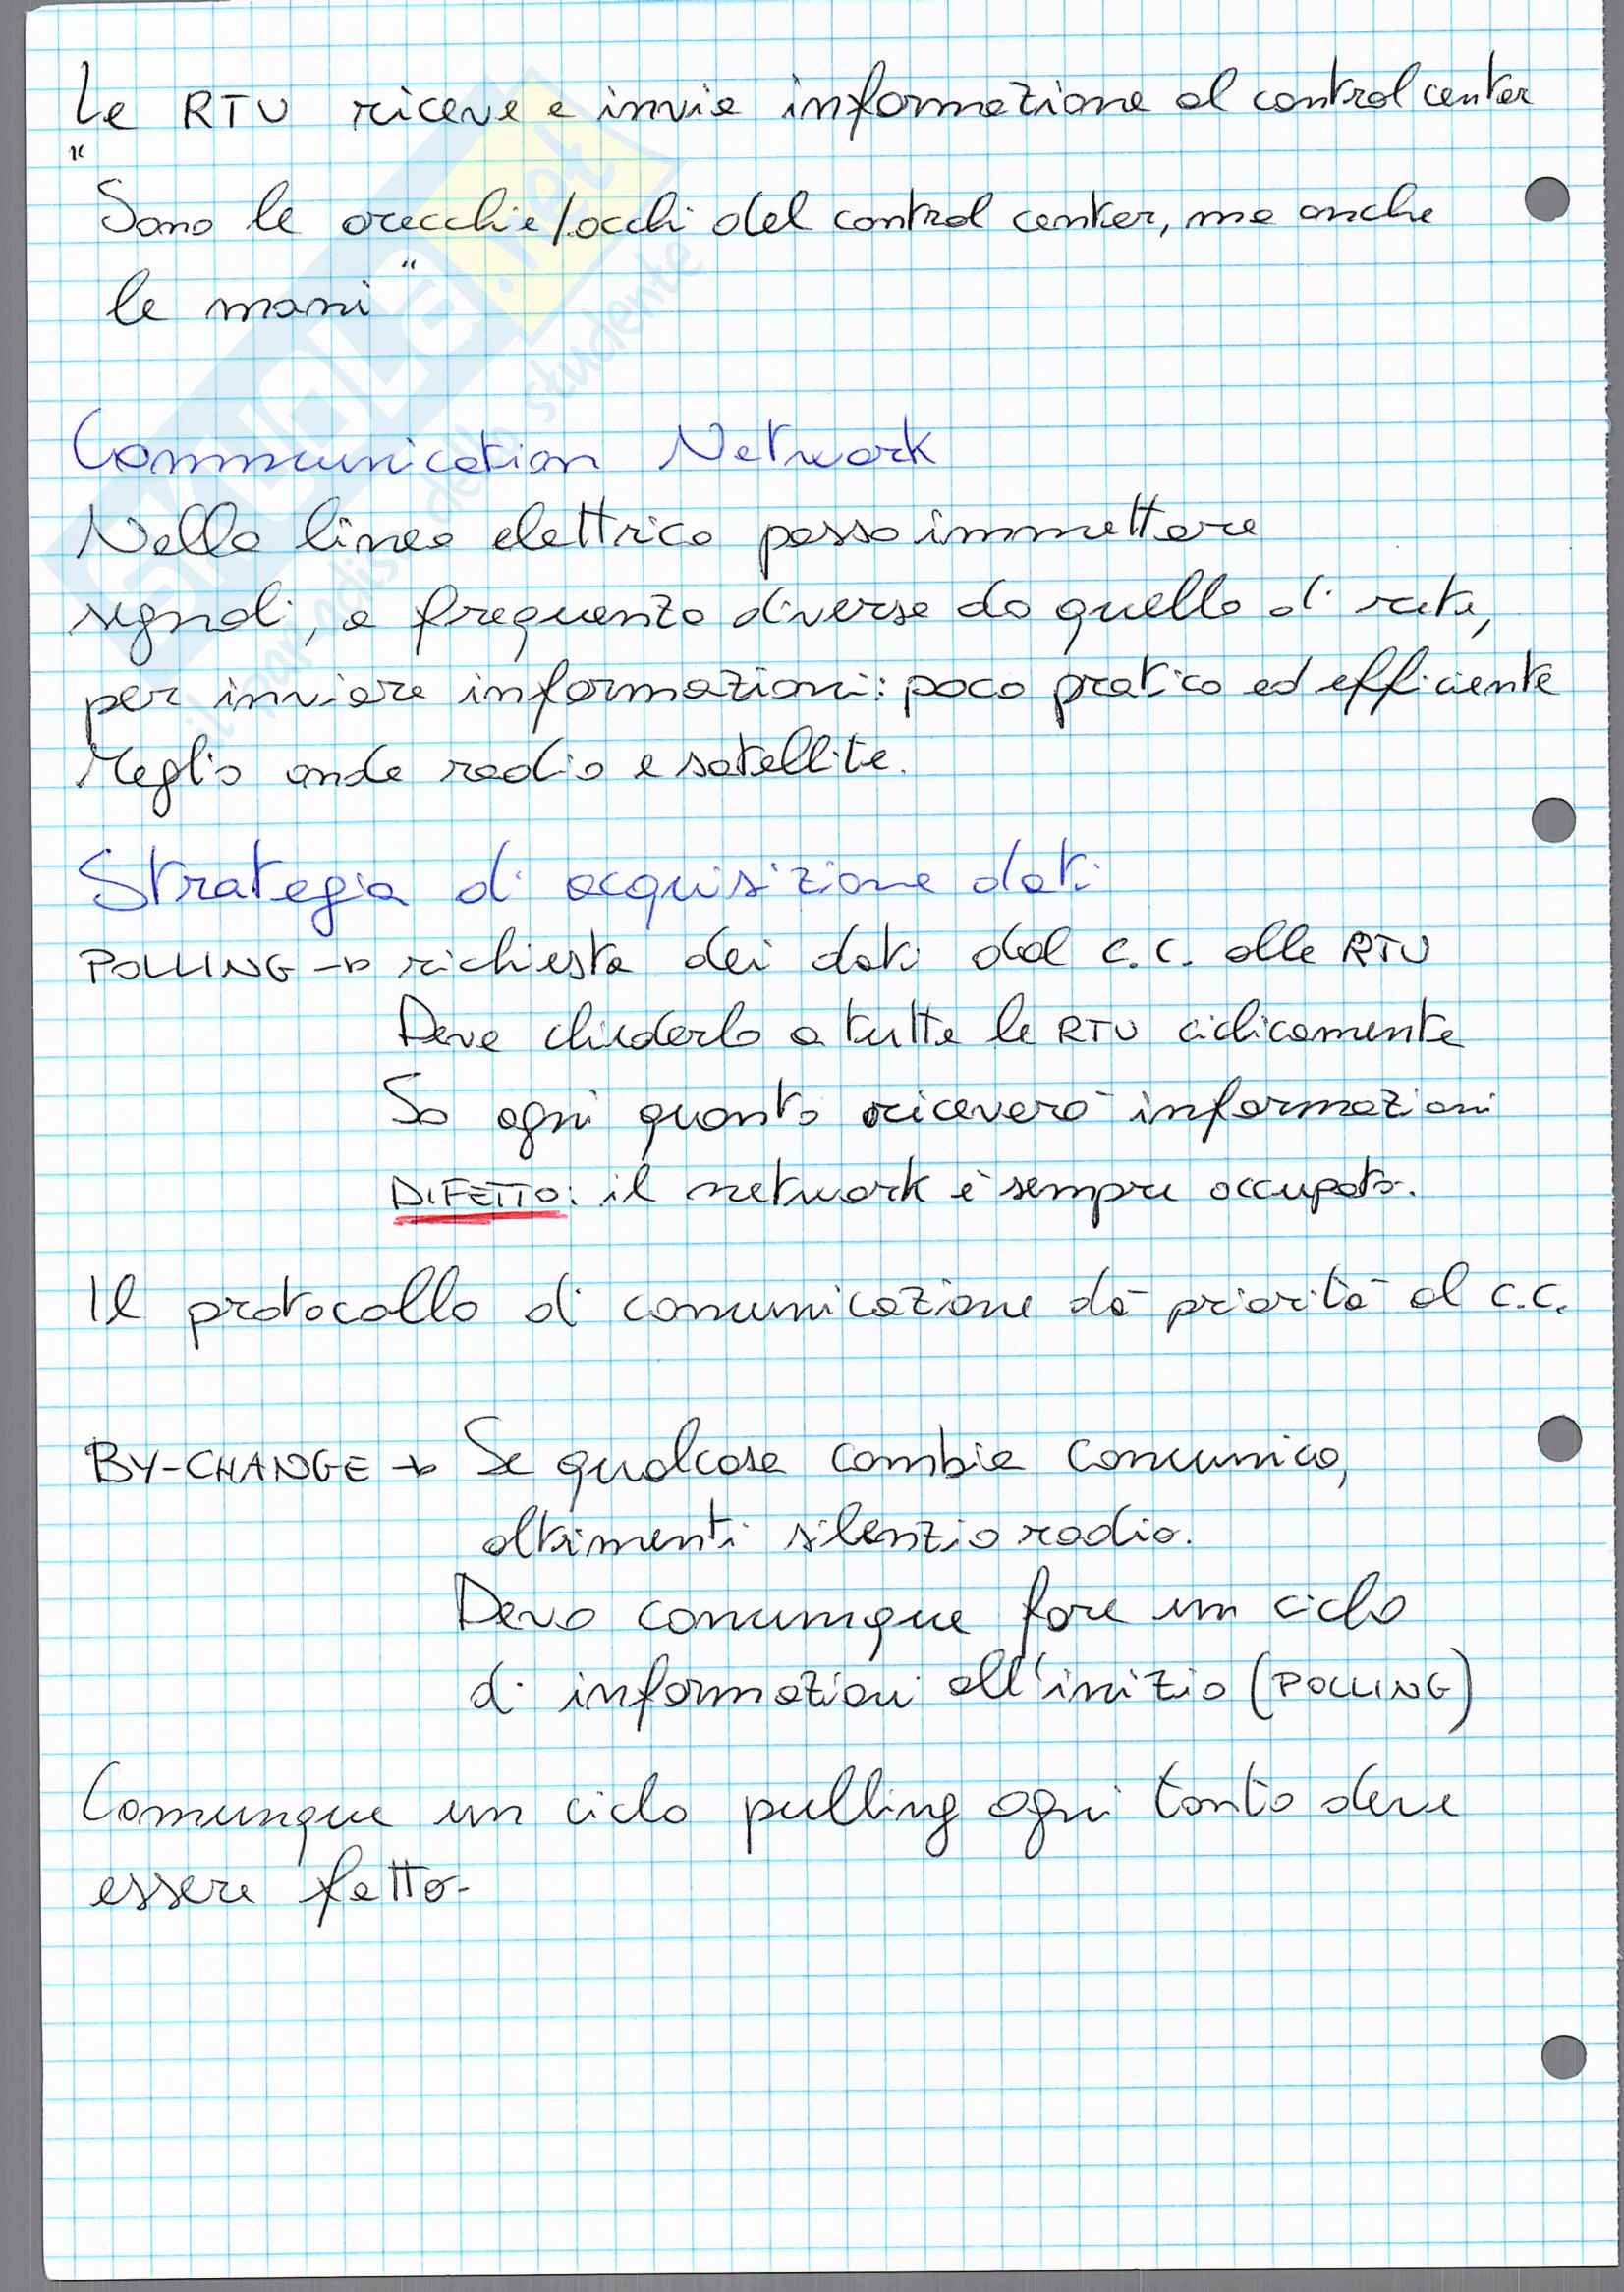 Le RTU riceve e invia informazione al control center
"Sono le orecchie/occhi del control center, ma anche
le mani"
Communication Network
Nella linea elettrica posso immettere
segnali, a frequenza diverse da quella di rete,
per inviare informazioni: poco pratico ed efficiente
Meglio onde radio e satellite.
Strategia di acquisizione dati
POLLING → richiesta dei dati dal c.c. alle RTU
Deve chiederlo a tutte le RTU ciclicamente
So ogni quanto riceverò informazioni
DIFETTO: il network è sempre occupato.
Il protocollo di comunicazione dà priorità al c.c.
BY-CHANGE → Se qualcosa cambia comunico,
altrimenti silenzio radio.
Devo comunque fare un ciclo
di informazioni all'inizio (POLLING)
Comunque un ciclo pulling ogni tanto deve
essere fatto.
SKUOLA.net
il paradiso dello studente